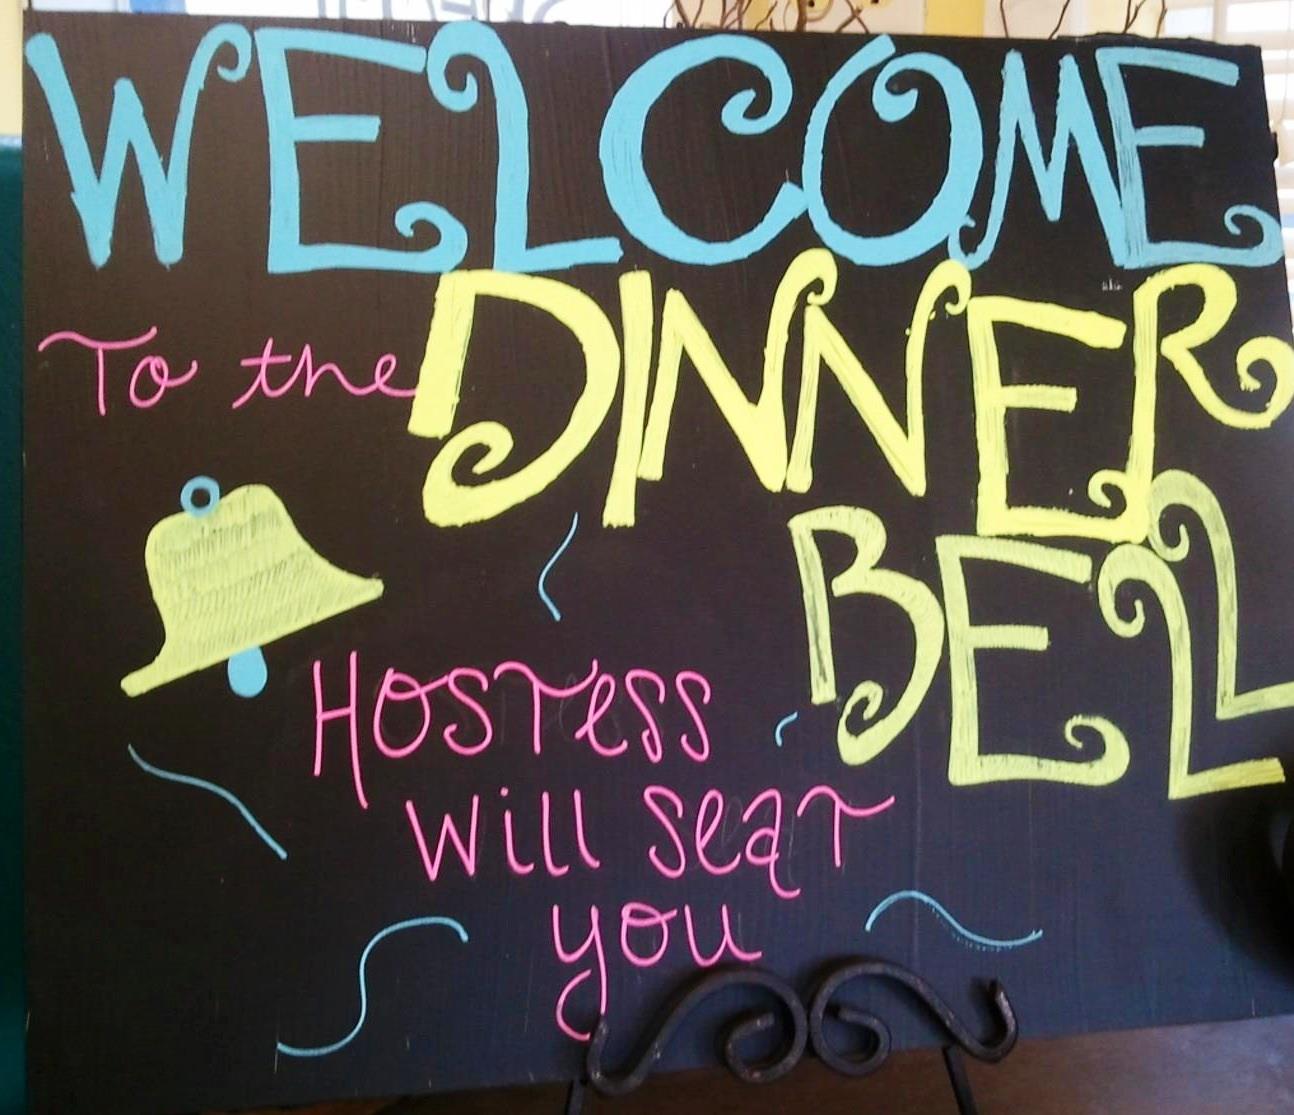 WELCOME
To the DINNER
BELL
HOSTess
will seaT
you